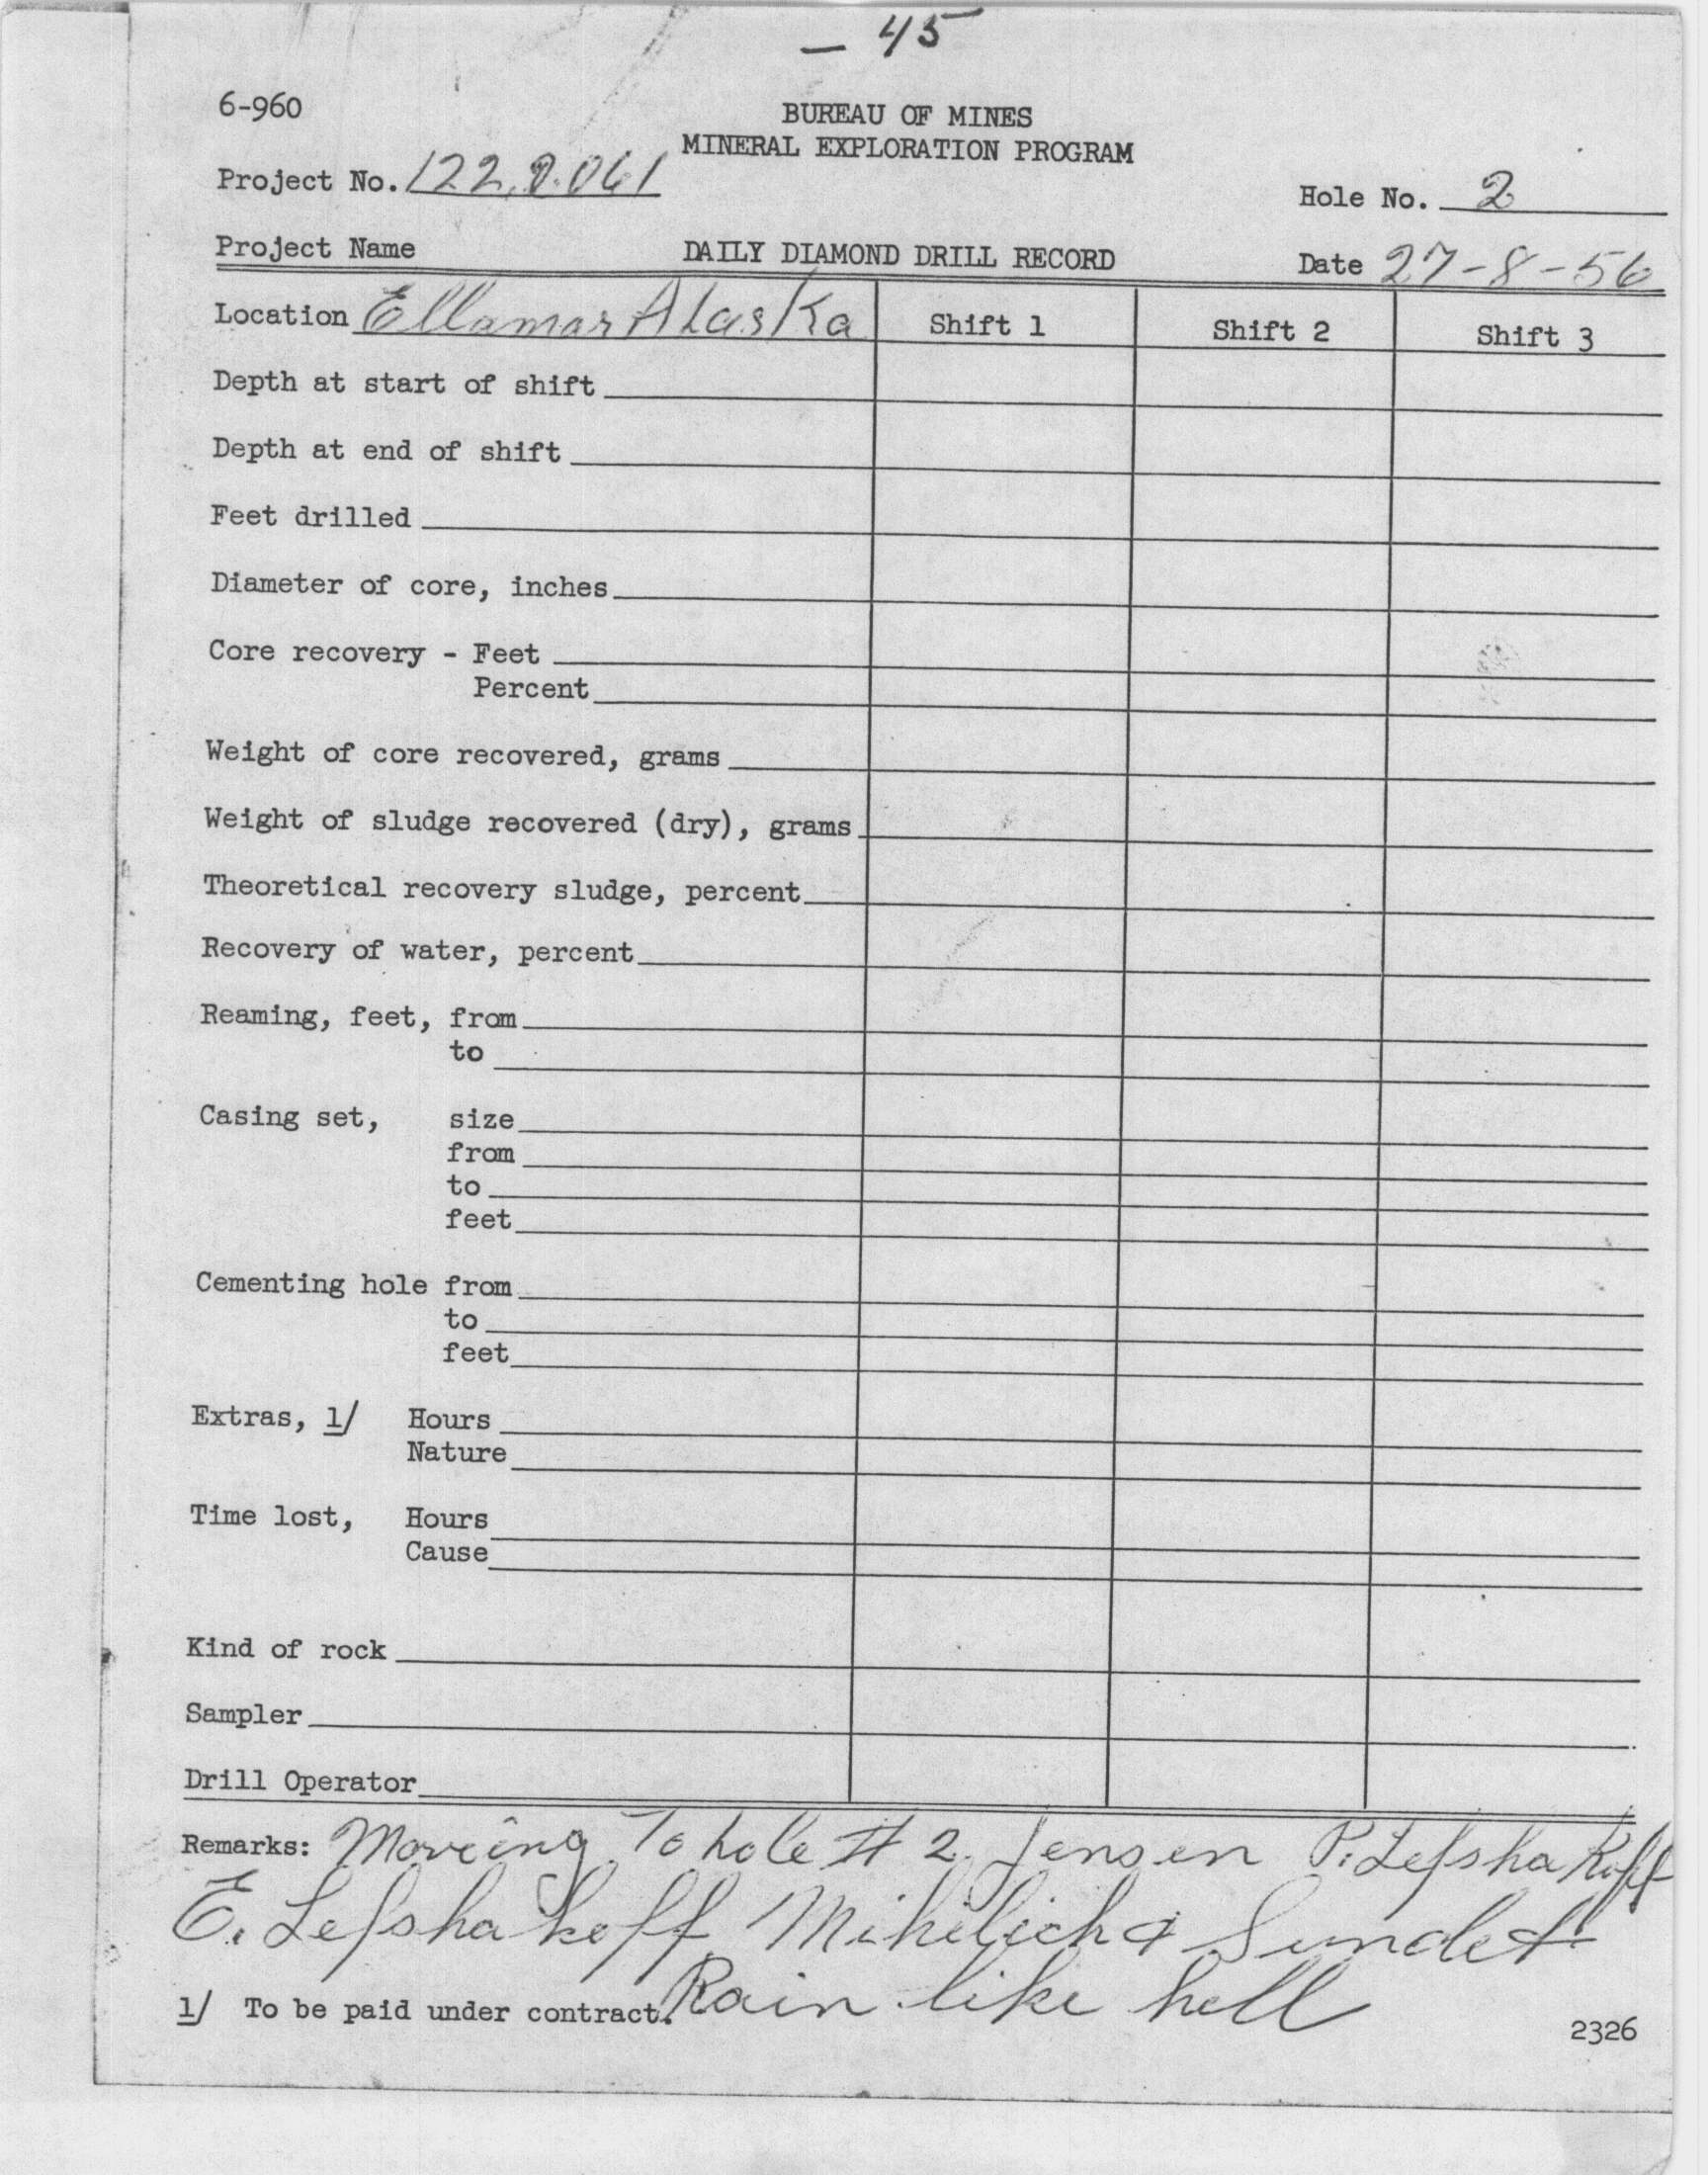 — 45
6-960
BUREAU OF MINES
MINERAL EXPLORATION PROGRAM
Project No. 122,2.061
Hole No. 2
Project Name
DAILY DIAMOND DRILL RECORD
Date 27-8-56
Location Ellamar Alaska Shift 1 Shift 2 Shift 3
Depth at start of shift
Depth at end of shift
Feet drilled
Diameter of core, inches
Core recovery - Feet
Percent
Weight of core recovered, grams
Weight of sludge recovered (dry), grams
Theoretical recovery sludge, percent
Recovery of water, percent
Reaming, feet, from
to
Casing set, size
from
to
feet
Cementing hole from
to
feet
Extras, 1/ Hours
Nature
Time lost, Hours
Cause
Kind of rock
Sampler
Drill Operator
Remarks: Moveing To hole # 2. Jensen P. Lefshakoff
E. Lefshakoff Mihelich & Sundet
Rain like hell
1/ To be paid under contract.
2326